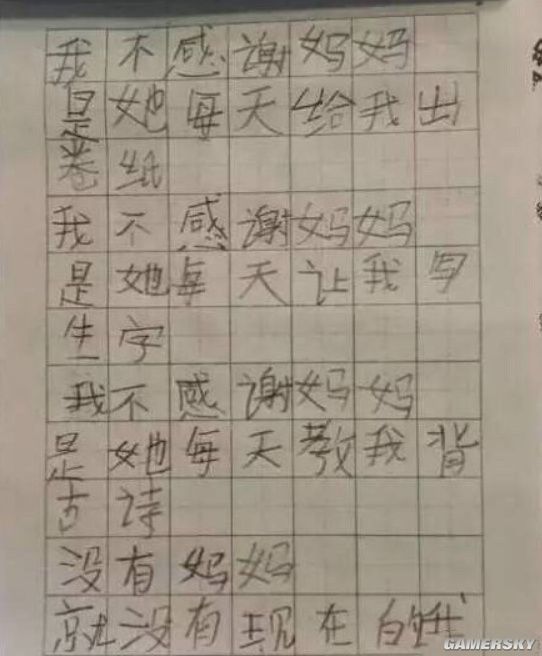 我不感谢妈妈
是她每天给我出
卷纸
我不感谢妈妈
是她每天让我写
生字
我不感谢妈妈
是她每天教我背
古诗
没有妈妈
就没有现在的我
GAMERSKY